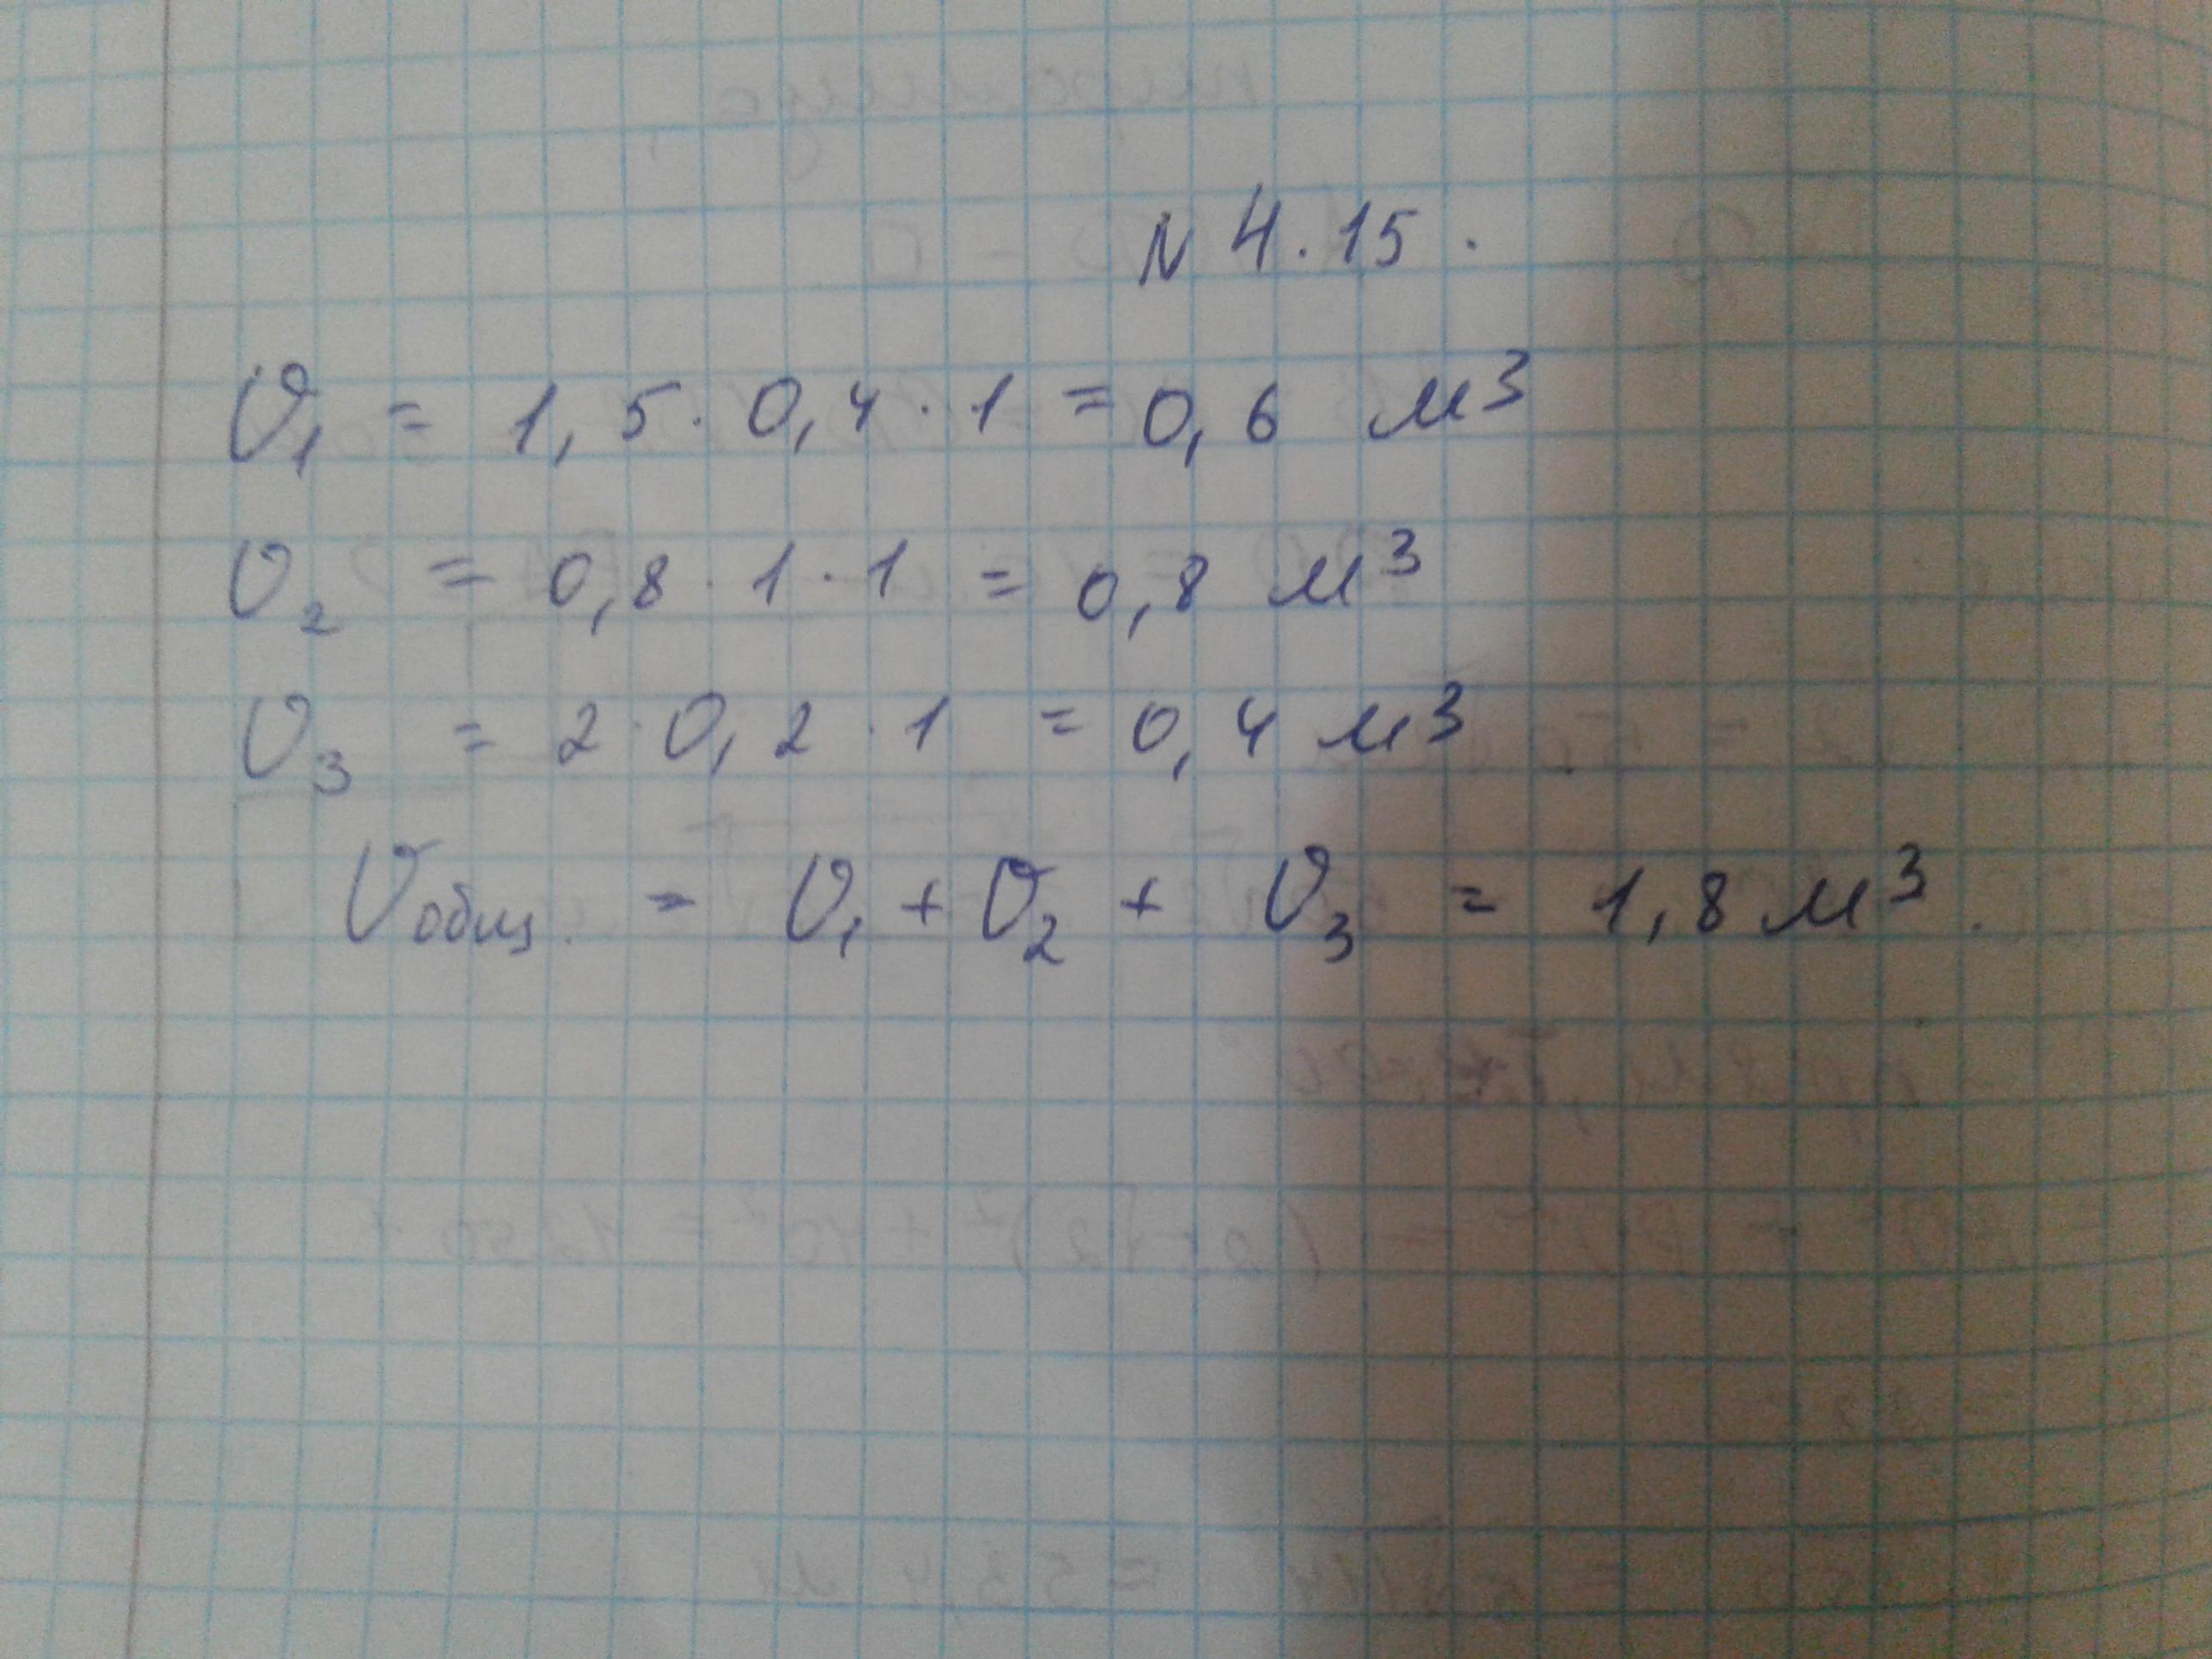 N 4.15.
V₁ = 1,5 · 0,4 · 1 = 0,6 м³
V₂ = 0,8 · 1 · 1 = 0,8 м³
V₃ = 2 · 0,2 · 1 = 0,4 м³
Vобщ. = V₁ + V₂ + V₃ = 1,8 м³.